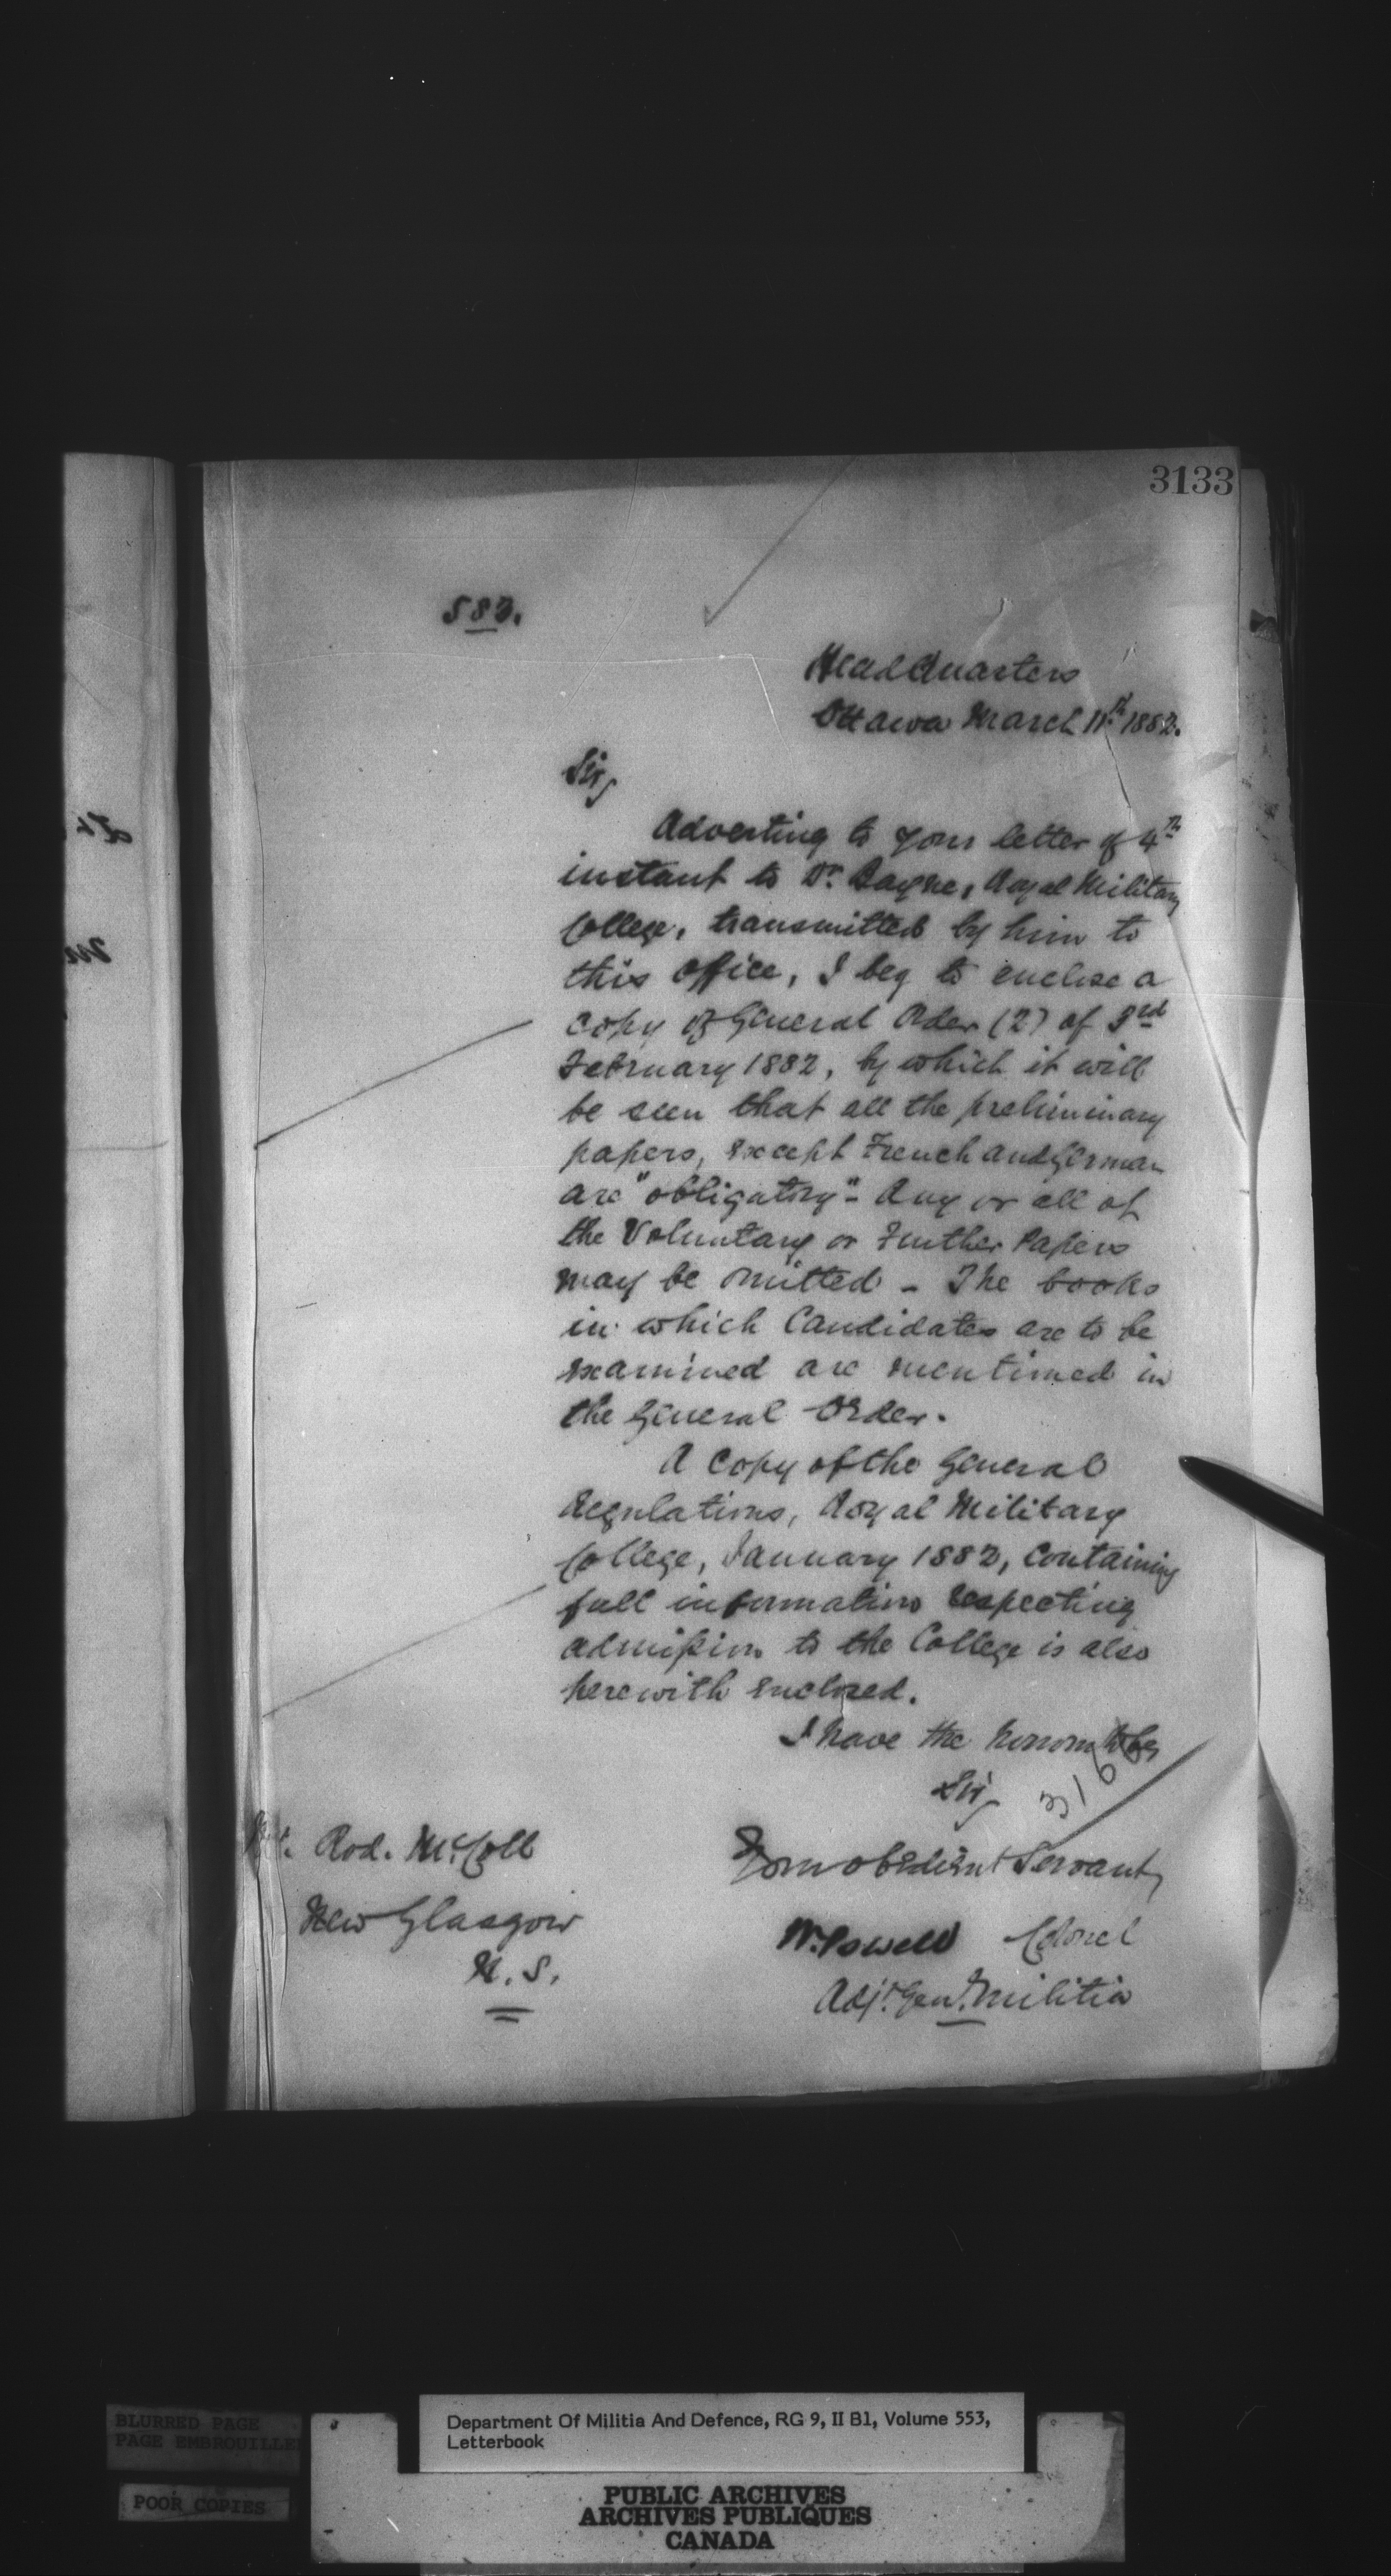 3133
583.
HeadQuarters
Ottawa March 11th 1882.
Sir,
Adverting to your letter of 4th
instant to Dr. Bayne, Royal Military
College, transmitted by him to
this office, I beg to enclose a
copy of General Order (2) of 3rd
February 1882, by which it will
be seen that all the preliminary
papers, except French and German
are "obligatory" - Any or all of
the Voluntary or Further Papers
may be omitted - The books
in which Candidates are to be
examined are mentioned in
the General Order.
A Copy of the General
Regulations, Royal Military
College, January 1882, Containing
full information respecting
admission to the College is also
herewith enclosed.
I have the honour to be,
Sir,
3166
Your obedient Servant,
W. Powell Colonel
Adjt. Genl. Militia
Rod. McColl
New Glasgow
N. S.
BLURRED PAGE
PAGE EMBROUILLEE
POOR COPIES
Department Of Militia And Defence, RG 9, II B1, Volume 553,
Letterbook
PUBLIC ARCHIVES
ARCHIVES PUBLIQUES
CANADA